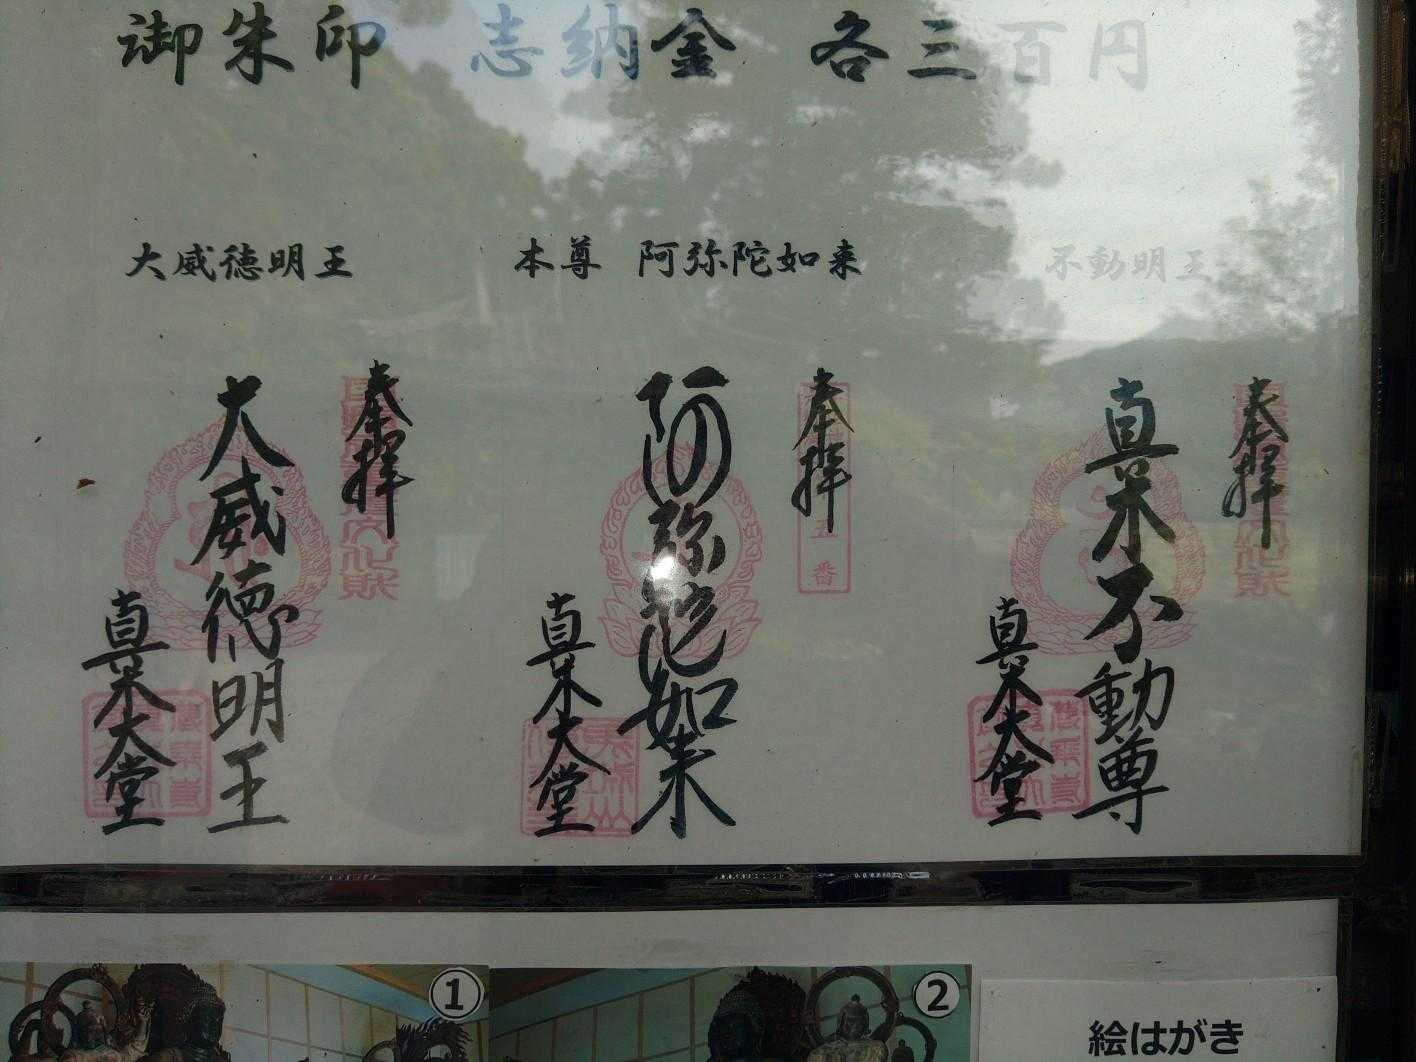 御朱印 志納金 各三百円
不動明王
奉拝
真木不動尊
真木大堂
本尊 阿弥陀如来
奉拝
五番
阿弥陀如来
真木大堂
大威徳明王
奉拝
大威徳明王
真木大堂
①
②
絵はがき